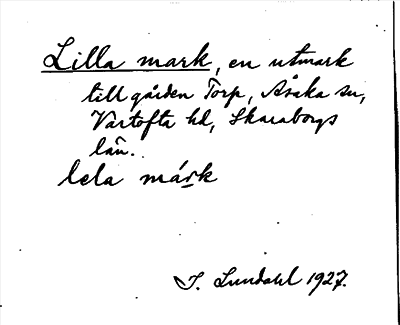 Lilla mark, en utmark
till gården Torp, Åsaka sn,
Vartofta hd, Skaraborgs
län.
lela márk
I. Lundahl 1927.